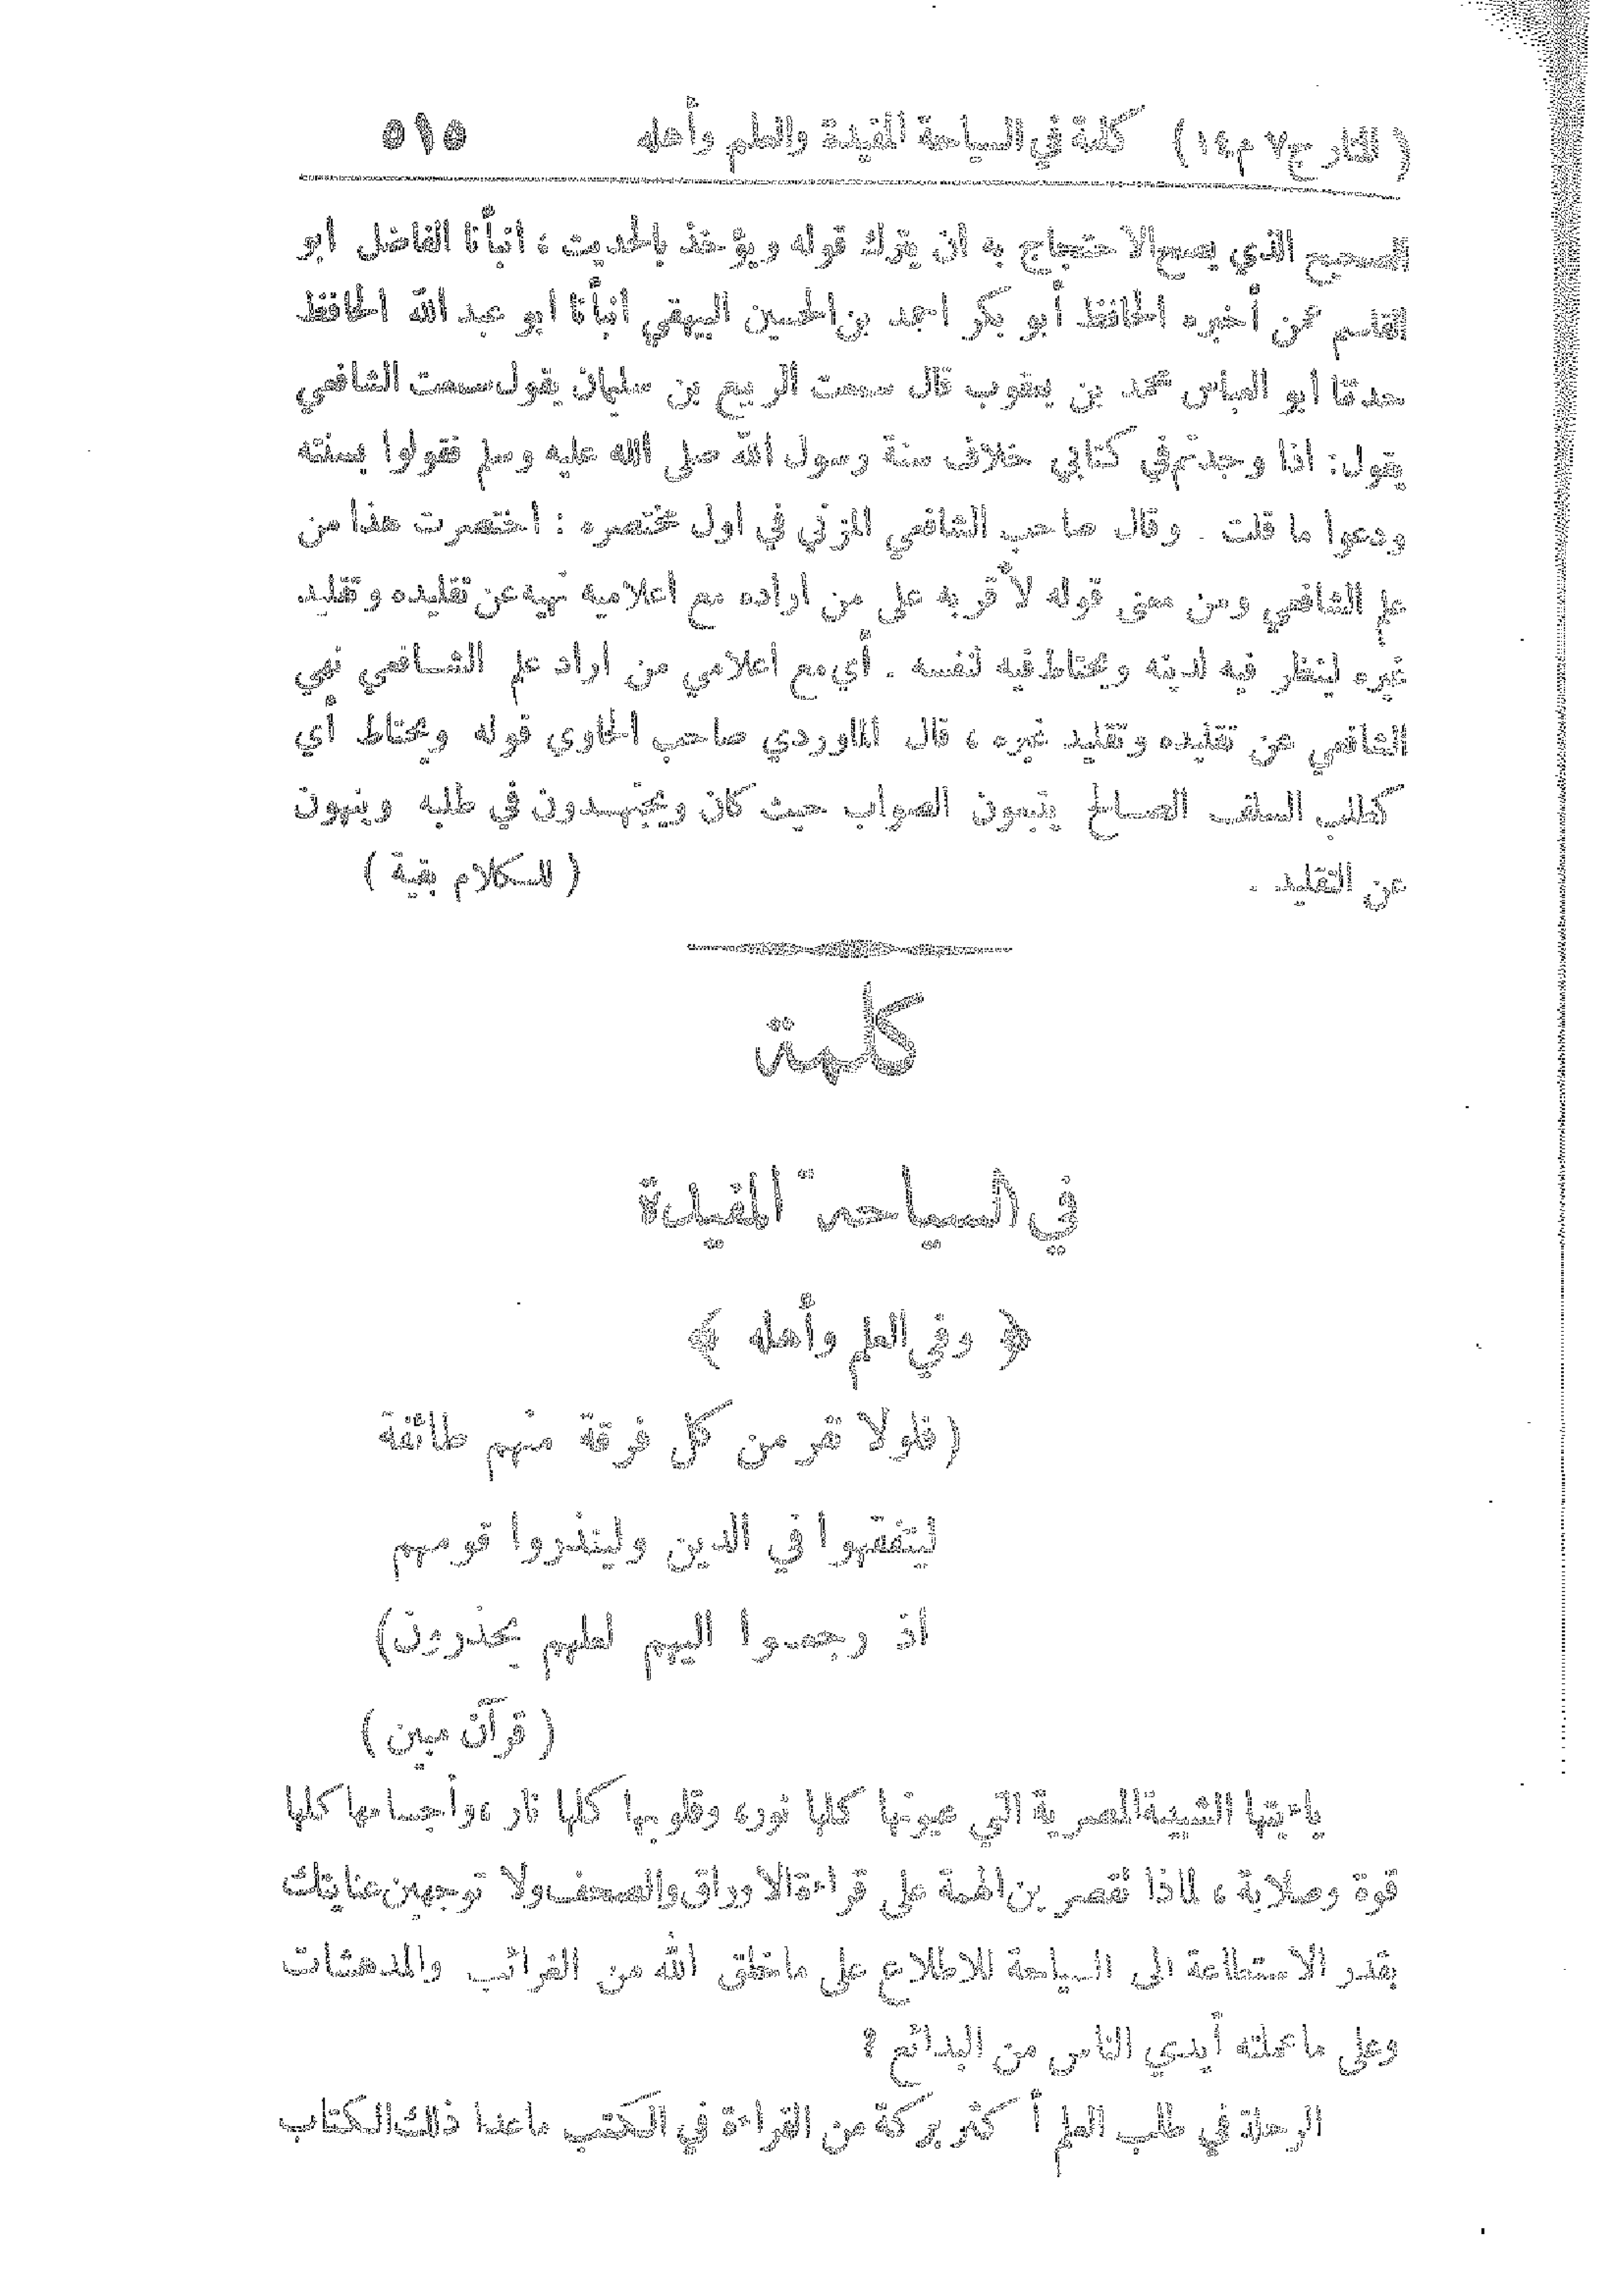 ( المنار ج٧ م١٤ ) كلمة في السياحة المفيدة والعلم وأهله ٥١٥
الصحيح الذي يصح الاحتجاج به ان يترك قوله ويؤخذ بالحديث ، انبأنا الفاضل ابو
القاسم عمن أخبره الحافظ أبو بكر احمد بن الحسين البيهقي انبأنا ابو عبد الله الحافظ
حدثنا أبو العباس محمد بن يعقوب قال سمعت الربيع بن سليمان يقول سمعت الشافعي
يقول: اذا وجدتم في كتابي خلاف سنة رسول الله صلى الله عليه وسلم فقولوا بسنته
ودعوا ما قلت . وقال صاحب الشافعي المزني في اول مختصره : اختصرت هذا من
علم الشافعي ومن معنى قوله لأقربه على من اراده مع اعلاميه نهيه عن تقليده وتقليد
غيره لينظر فيه لدينه ويحتاط فيه لنفسه . أي مع اعلامي من اراد علم الشافعي نهي
الشافعي عن تقليده وتقليد غيره ، قال الماوردي صاحب الحاوي قوله ويحتاط أي
كطلب السلف الصالح يتبعون الصواب حيث كان ويجتهدون في طلبه وينهون
عن التقليد . ( للكلام بقية )
كلمة
في السياحة المفيدة
﴿ وفي العلم وأهله ﴾
(فلولا نفر من كل فرقة منهم طائفة
ليتفقهوا في الدين ولينذروا قومهم
اذ رجعوا اليهم لعلهم يحذرون)
( قرآن مبين )
ياءيتها الشبيبة المصرية التي عيونها كلها نور، وقلوبها كلها نار ،وأجسامها كلها
قوة وصلابة ، لماذا تقصرين الهمة على قراءة الاوراق والصحف ولا توجهين عنايتك
بقدر الاستطاعة الى السياحة للاطلاع على ما خلق الله من الغرائب والمدهشات
وعلى ما عملته أيدي الناس من البدائع ؟
الرحلة في طلب العلم أكثر بركة من القراءة في الكتب ماعدا ذلك الكتاب